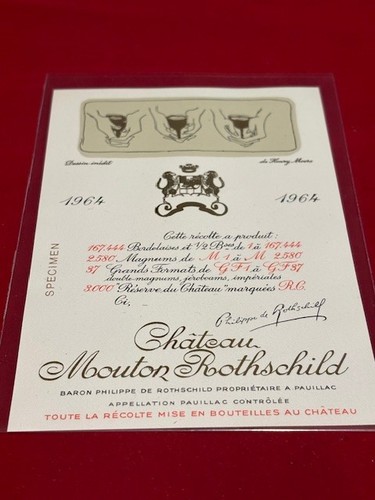 Dessin inédit de Henry Moore
1964 1964
Cette récolte a produit :
167.444 Bordelaises et 1/2 Bses de 1 à 167.444
2.580 Magnums de M 1 à M 2.580
37 Grands Formats de G F 1 à G F 37
double-magnums, jéroboams, impériales
3.000 "Réserve du Château" marquées R.C.
Ci,
Philippe de Rothschild
SPECIMEN
Château
Mouton Rothschild
BARON PHILIPPE DE ROTHSCHILD PROPRIÉTAIRE A PAUILLAC
APPELLATION PAUILLAC CONTRÔLÉE
TOUTE LA RÉCOLTE MISE EN BOUTEILLES AU CHÂTEAU